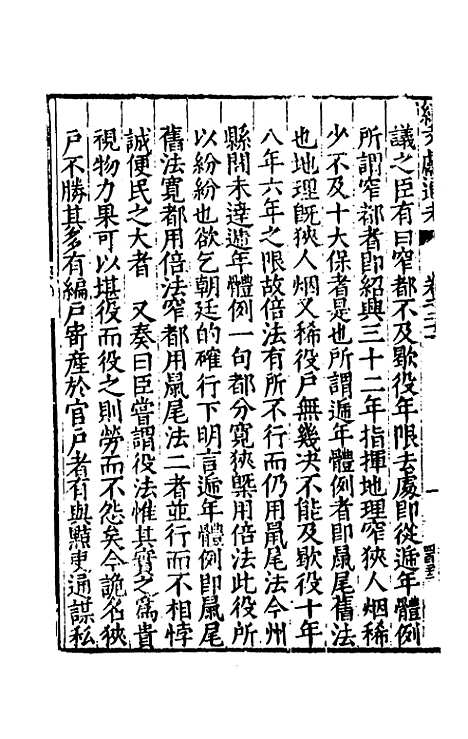 議之臣有曰窄都不及歇役年限去處即從遞年體例
所謂窄都者即紹興三十二年指揮地理窄狹人烟稀
少不及十大保者是也所謂遞年體例者即鼠尾舊法
也地理既狹人烟又稀役戶無幾决不能及歇役十年
八年六年之限故倍法有所不行而仍用鼠尾法今州
縣間未達遞年體例一句都分寛狹槩用倍法此役所
以紛紛也欲乞朝廷的確行下明言遞年體例即鼠尾
舊法寛都用倍法窄都用鼠尾法二者並行而不相悖
誠便民之大者　又奏曰臣嘗謂役法惟其實之為貴
視物力果可以堪役而役之則勞而不怨矣今詭名挾
戶不勝其多有編戶寄産於官戶者有與黠吏通謀私